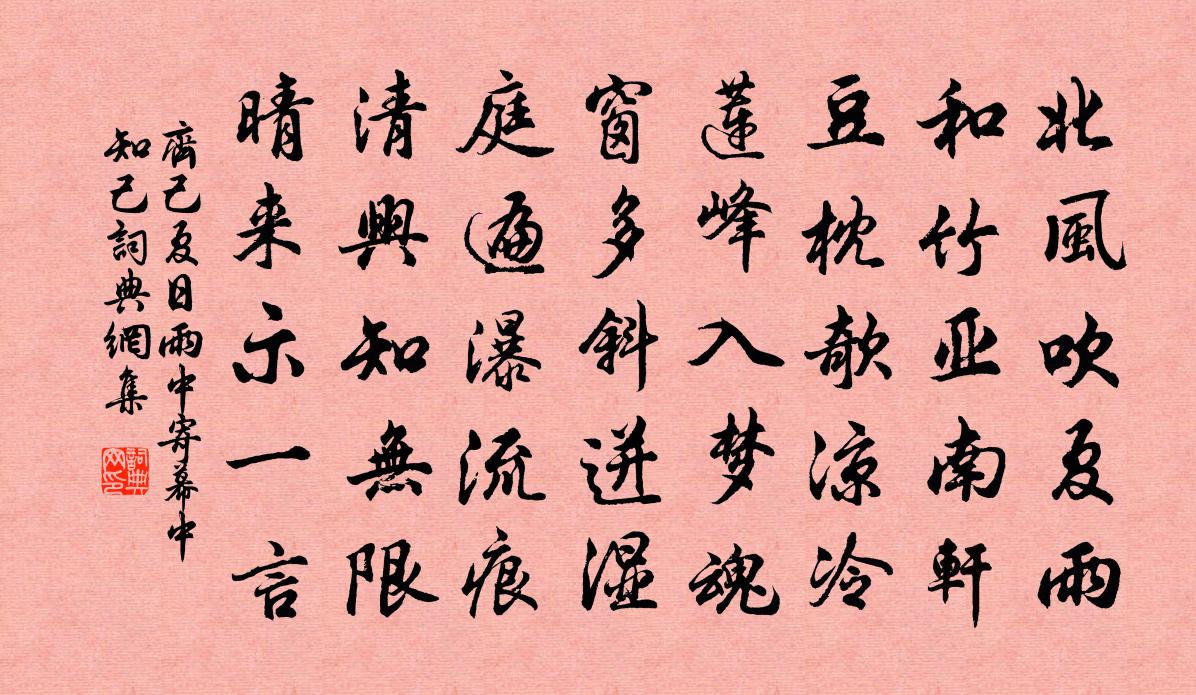 北風吹夏雨
和竹亚南軒
豆枕欹凉冷
蓮峰入梦魂
窗多斜迸湿
庭遍瀑流痕
清興知無限
晴来示一言
齊己夏日雨中寄幕中
知己詞典網集
詞典网印